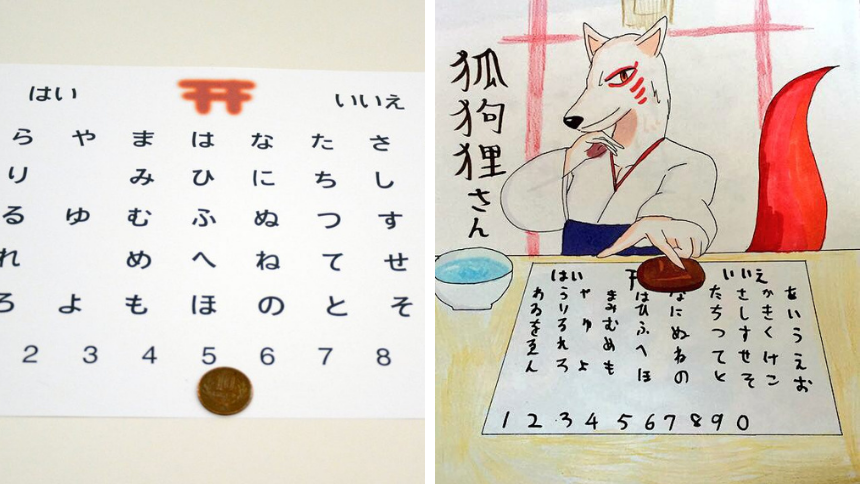 はい いいえ
ら や ま は な た さ
り み ひ に ち し
る ゆ む ふ ぬ つ す
れ め へ ね て せ
ろ よ も ほ の と そ
2 3 4 5 6 7 8
10
狐狗狸さん
はい いいえ
あいうえお
かきくけこ
さしすせそ
たちつてと
なにぬねの
はひふへほ
まみむめも
やゆよ
らりるれろ
わゐをゑん
1 2 3 4 5 6 7 8 9 0